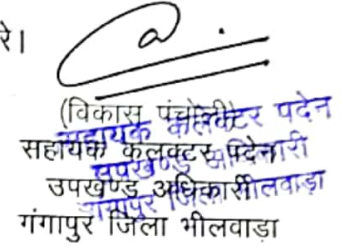 रे।
(विकास पंचोली)
सहायक कलक्टर पदेन
उपखण्ड अधिकारी
गंगापुर जिला भीलवाड़ा
सहायक कलेक्टर पदेन
उपखण्ड अधिकारी
गंगापुर जिला भीलवाड़ा